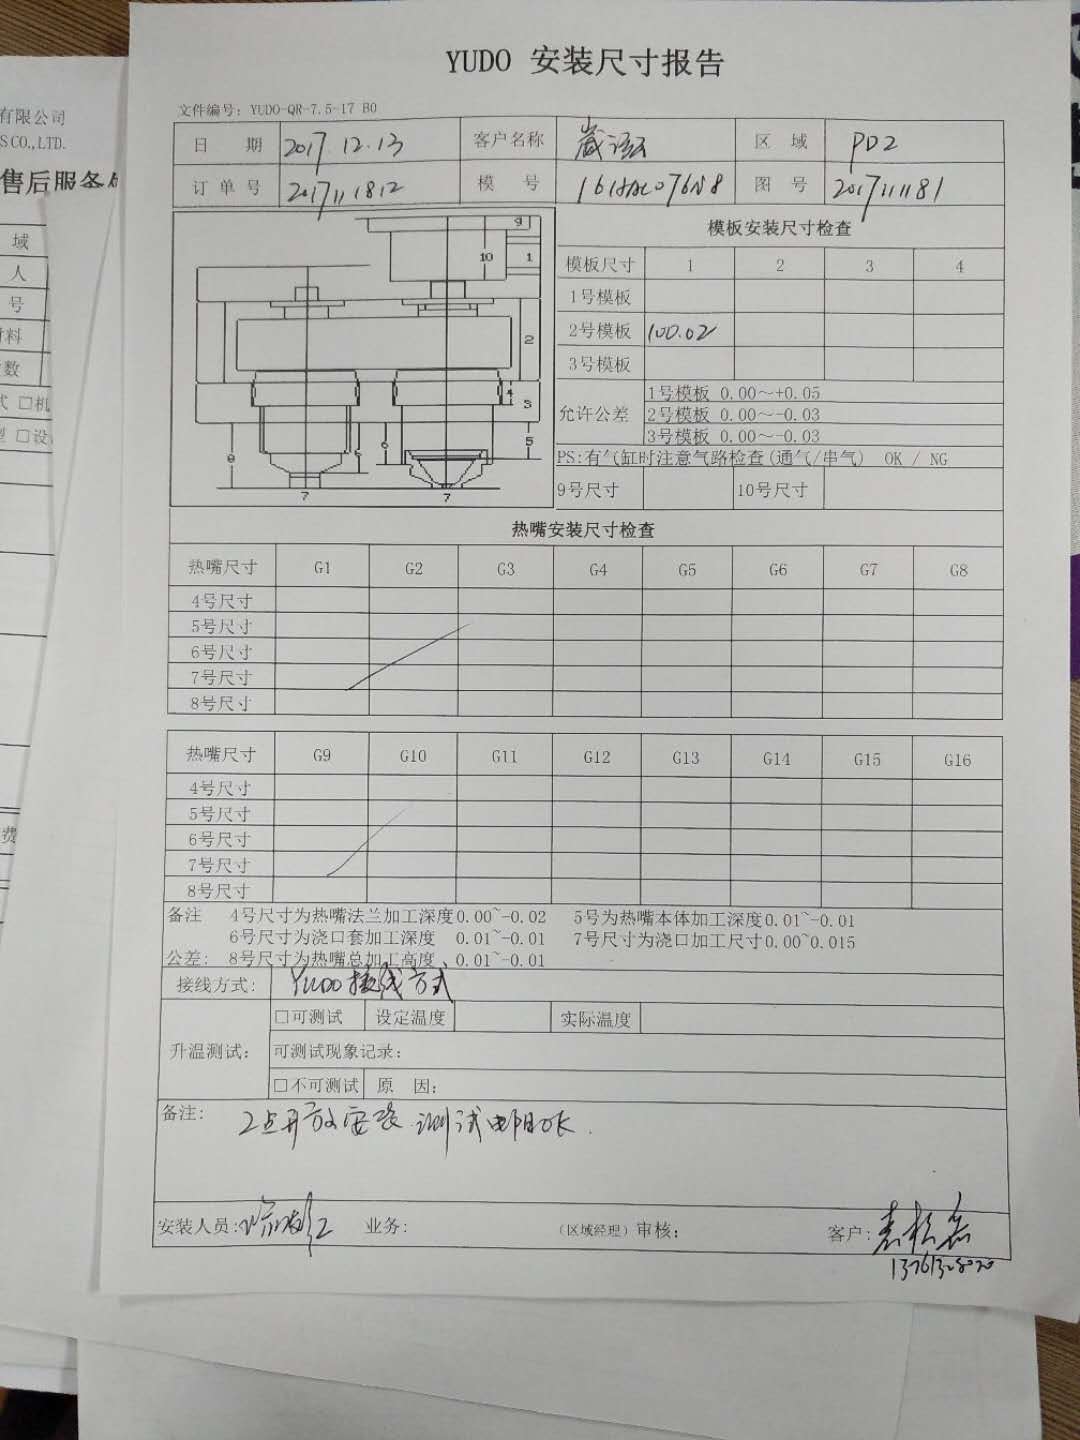 YUDO 安装尺寸报告
文件编号: YUDO-QR-7.5-17 B0
日 期 2017.12.13 客户名称 区 域 PD2
订单号 2017111812 模 号 图 号 2017111181
模板安装尺寸检查
模板尺寸 1 2 3 4
1号模板
2号模板 100.02
3号模板
允许公差
1号模板 0.00～+0.05
2号模板 0.00～-0.03
3号模板 0.00～-0.03
PS:有气缸时注意气路检查(通气/串气) OK / NG
9号尺寸 10号尺寸
9
10 1
2
4
3
5
8 6 6
7 7
热嘴安装尺寸检查
热嘴尺寸 G1 G2 G3 G4 G5 G6 G7 G8
4号尺寸
5号尺寸
6号尺寸
7号尺寸
8号尺寸
热嘴尺寸 G9 G10 G11 G12 G13 G14 G15 G16
4号尺寸
5号尺寸
6号尺寸
7号尺寸
8号尺寸
备注 4号尺寸为热嘴法兰加工深度0.00~-0.02 5号为热嘴本体加工深度0.01~-0.01
6号尺寸为浇口套加工深度 0.01~-0.01 7号尺寸为浇口加工尺寸0.00~0.015
公差: 8号尺寸为热嘴总加工高度 0.01~-0.01
接线方式: YUDO接线方式
升温测试: □可测试 设定温度 实际温度
可测试现象记录:
□不可测试 原 因:
备注: 2点开放安装.测试电阻OK.
安装人员: 业务: (区域经理)审核: 客户:
有限公司
S CO.,LTD.
售后服务
域
人
号
材料
数
式 □机
型 □设
费